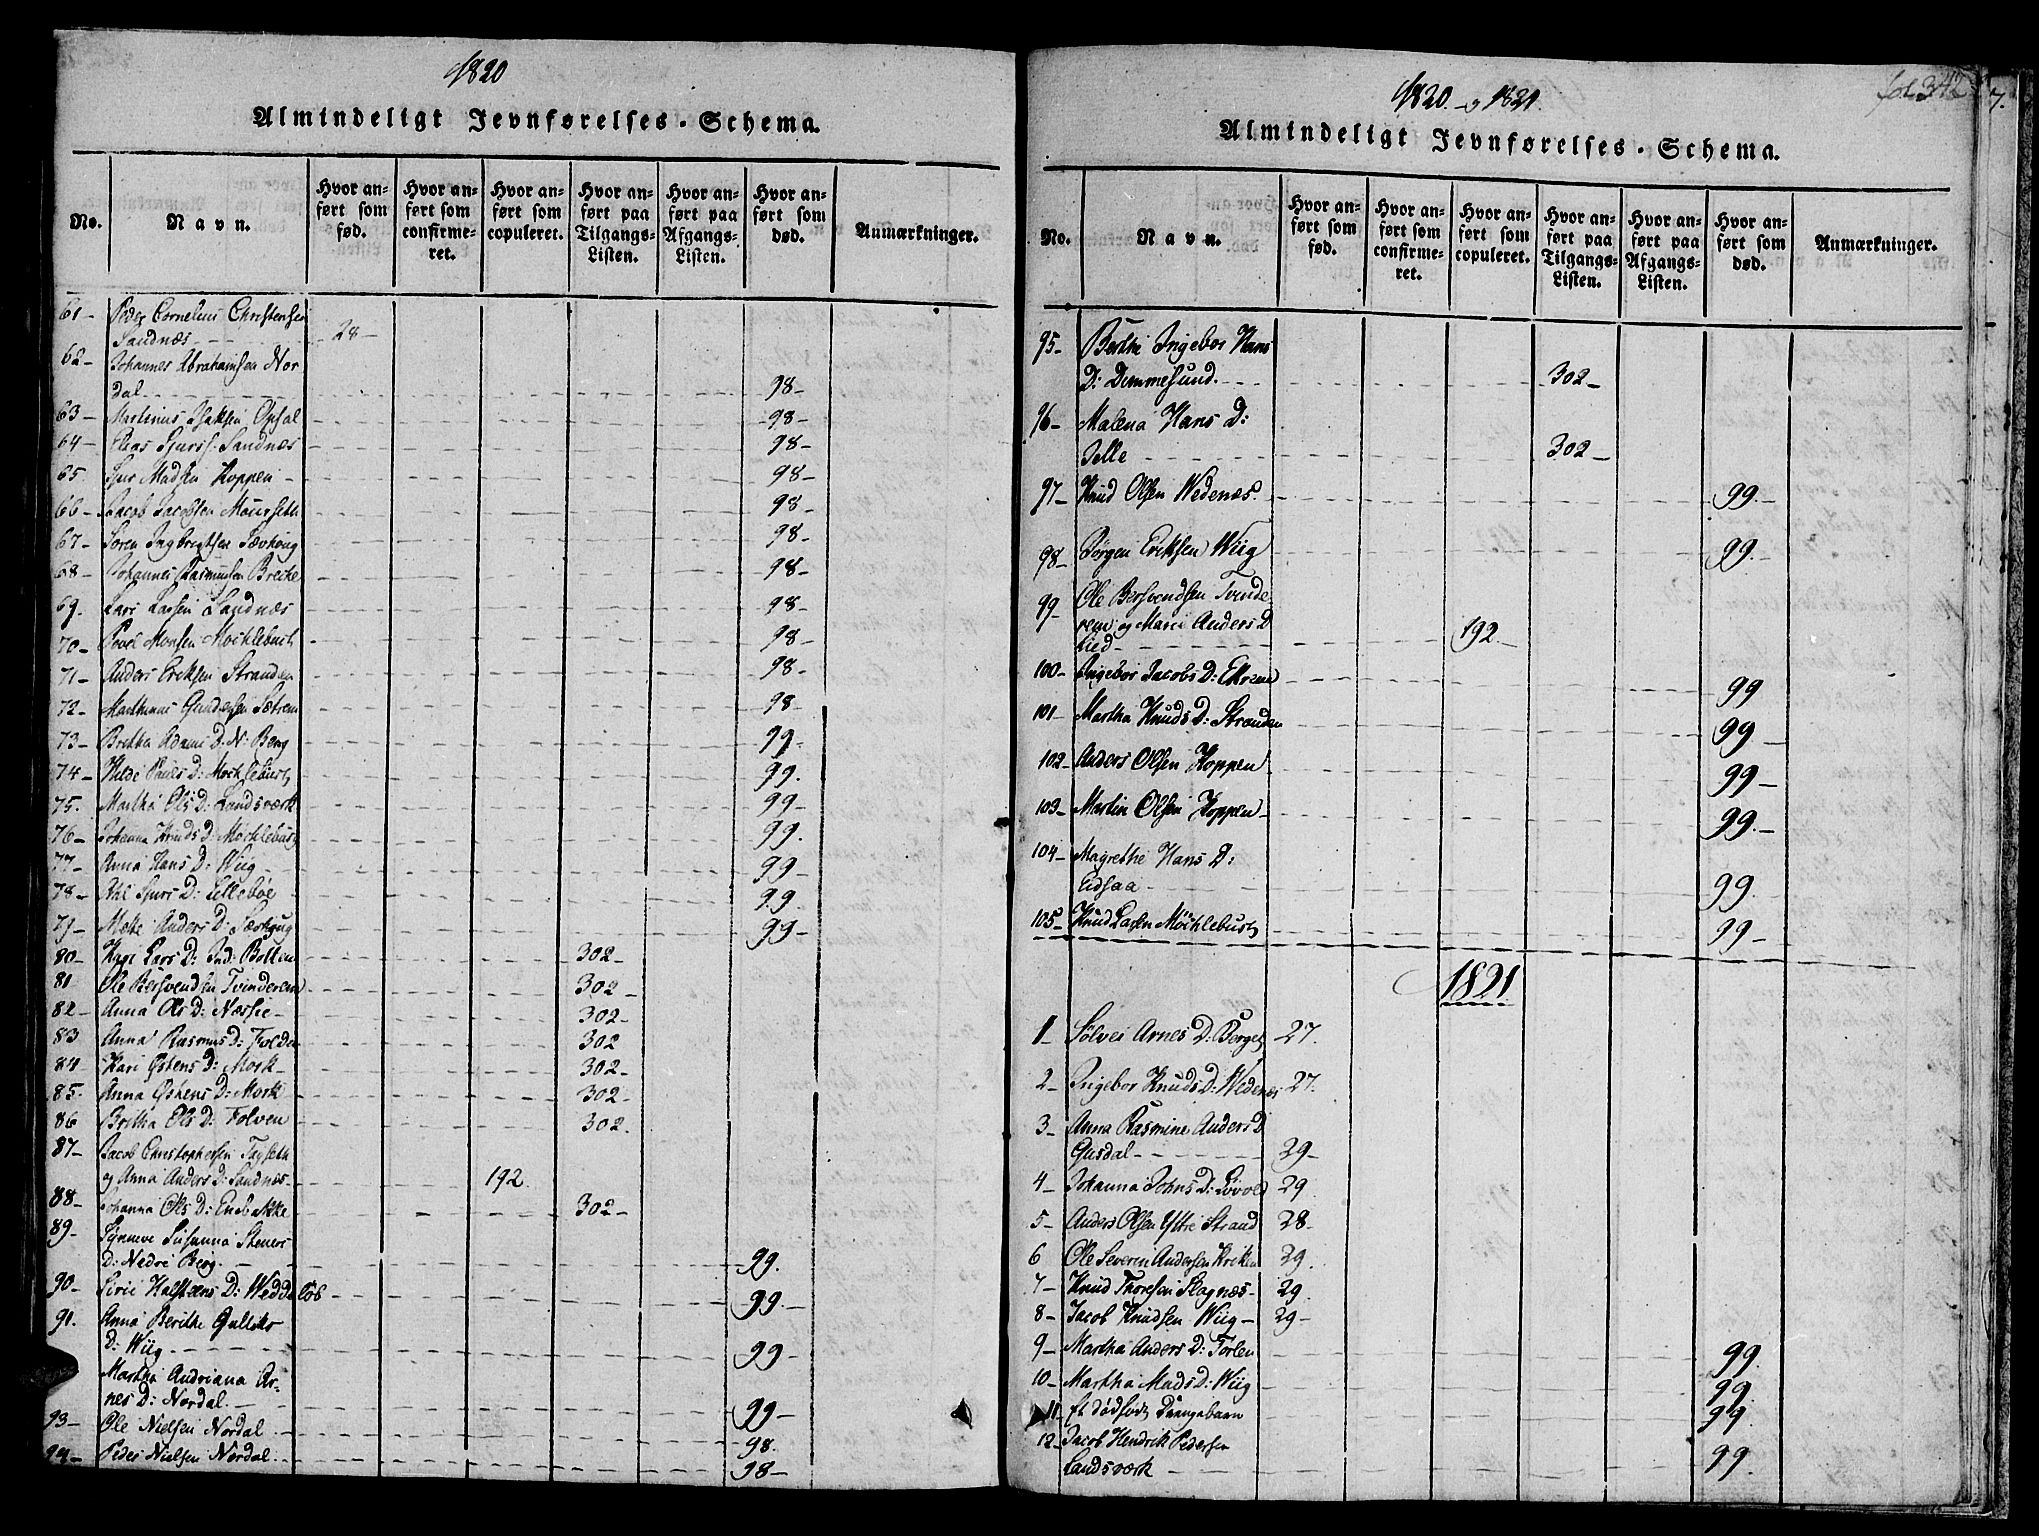 1820
Almindeligt Jevnførelses-Schema.
No.
Navn.
Hvor an-
ført som
fød.
Hvor an-
ført som
confirme-
ret.
Hvor an-
ført som
copuleret.
Hvor an-
ført paa
Tilgangs-
Listen.
Hvor an-
ført paa
Afgangs-
Listen.
Hvor an-
ført som
død.
Anmærkninger.
61- Peder Cornelius Christensen
Sandnæs 28-
62- Johannes Abrahamsen Nor
dal 98-
63- Martinus Isaksen Opsal 98-
64- Elias Sjurss. Sandnæs 98-
65 Sjur Madsen Koppen 98-
66- Jacob Jacobsen Mourseth 98-
67- Søren Ingbregtsen 98-
68- Johannes Rasmusen Brecke 98-
69. Lars Larsen Sandnæs 98-
70- Poul Monsen Mochlebust 98-
71- Anders Eriksen Stranden 98-
72- Marthinus Gundersen Sætrem 98-
73- Brethe Adams D: N: Berg 99-
74- Hilde Pouls D: Mochlebust 99.
75. Martha Ols D: Landsværk 99-
76- Johanna Knuds D: Mochlebust 99.
77- Anna Hans D: Wiig 99-
78- Ahl Sjurs D: Lillebøe 99.
79- Mette Anders D: 99-
80- Lars D: Ind: Botten 302-
81 Ole Bersvendsen Tvinderem 302-
82- Anna Ols D: Næsse 302-
83 Anna Rasmus D: Folden 302
84 Kari Østens D: Mork 302-
85. Anna Østens D: Mork 302-
86 Britha Ols D: Folven 302.
87- Jacob Christophersen Tafseth
og Anna Anders D: Sandnæs- 192.
88- Johanna Ols D: Enebakke 302-
89. Synneve Susanna Steners
D: Nedre Berg. 99.
90- Sirie Halsteens D: Weddeløb 99-
91. Anna Berithe Gulleks
D: Wiig 99-
Martha Andriana Ar-
nes D: Nordal. 99-
93- Ole Nielsen Nordal 98.
94- Peder Nielsen Nordal 98-
1820-og 1821.
fol. 342
7.
Almindeligt Jevnførelses-Schema.
No.
Navn.
Hvor an-
ført som
fød.
Hvor an-
ført som
confirme-
ret.
Hvor an-
ført som
copuleret.
Hvor an-
ført paa
Tilgangs-
Listen.
Hvor an-
ført paa
Afgangs-
Listen.
Hvor an-
ført som
død.
Anmærkninger.
95- Berthe Ingebor Hans
D: Dimmesund. 302-
96- Malena Hans D:
Jelle 302-
97- Knud Olsen Wedenæs. 99.-
98- Jørgen Eriksen Wiig 99.-
99- Ole Bersvendsen Tvinde
rem og Mari Anders D
Lied 192-
100- Ingebor Jacobs D: Ekrem 99
101- Martha Knuds D: Stranden 99-
102- Anders Olsen Koppen 99-
103- Martin Olsen Koppen 99.-
104- Magrethe Hans D:
Eidsaa 99.
105- Knud Larsen Mochlebust 99-
1821.
1- Sølvei Arnes D: Berget 27.
2- Ingebor Knuds D: Wedenæs 27.
3- Anna Rasmine Anders D
Gusdal 29-
4- Johanna Johns D: Løvold 29
5- Anders Olsen Ystre Strand 28-
6 Ole Severin Andersen Kroken 29.
7- Knud Thoresen Slagnæs- 29.
8- Jacob Knudsen Wiig- 29-
9- Martha Anders D: 99.
10- Martha Mads D: Wiig 99.
11- Et dødfødt Drengebarn 99.
12- Jacob Hendrik Pedersen
Landsværk 99.